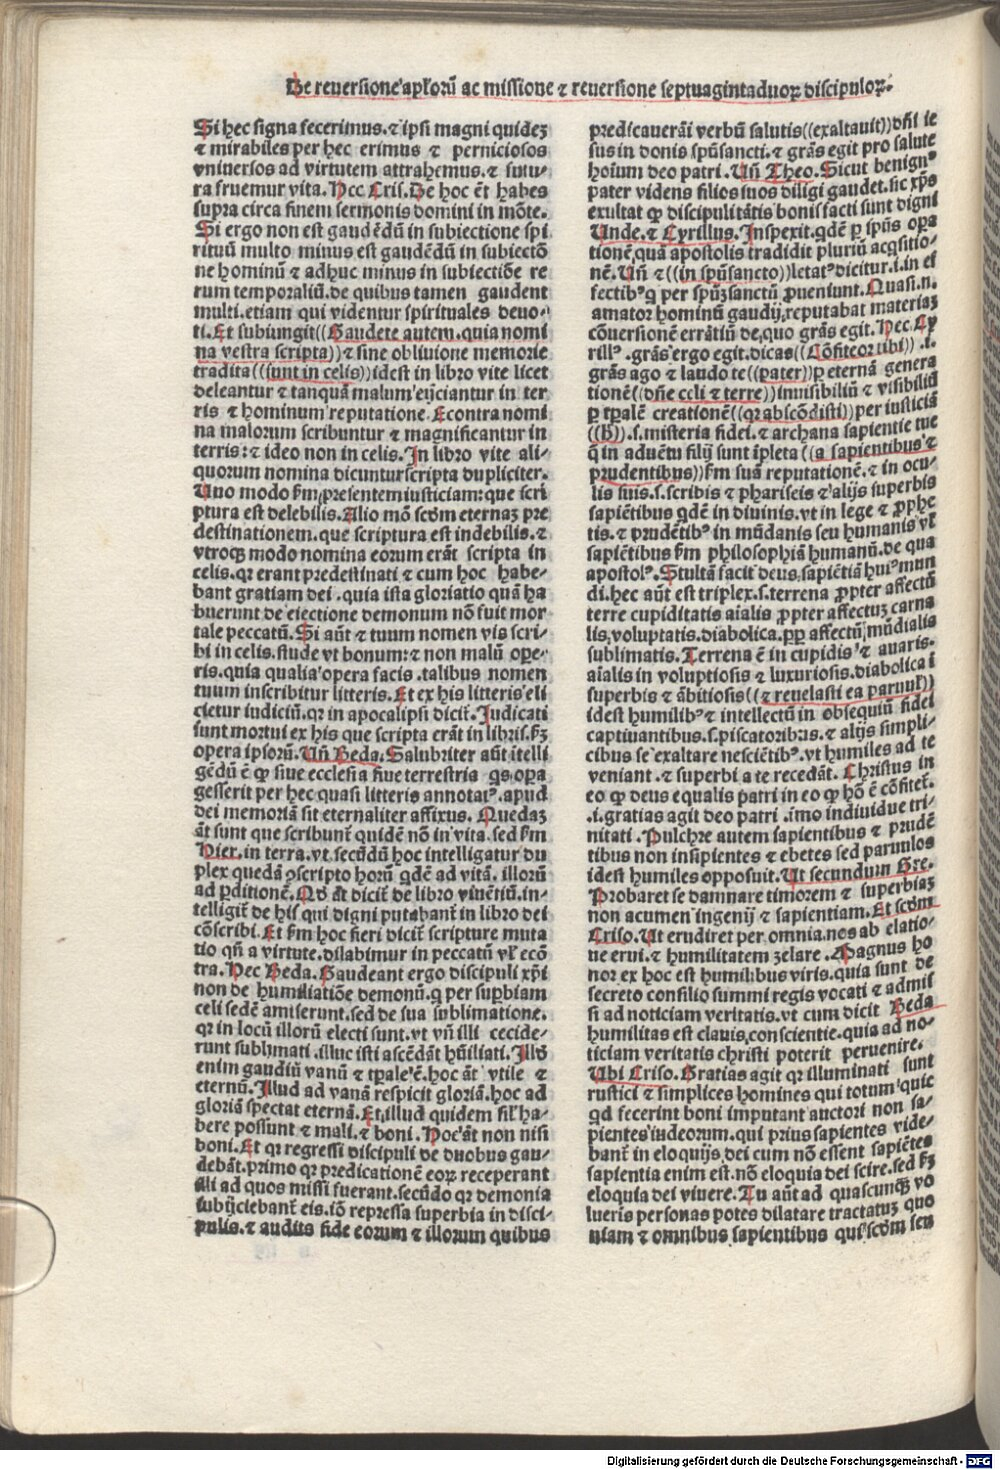 De reuersione aplorũ ac missione ⁊ reuersione septuagintaduoꝝ discipuloꝝ.
Si hec signa fecerimus.⁊ ipsi magni quideꝫ
⁊ mirabiles per hec erimus ⁊ perniciosos
vniuersos ad virtutem attrahemus.⁊ futu-
ra fruemur vita. Hec Cris. De hoc et̃ habes
supra circa finem sermonis domini in mõte.
Si ergo non est gaudẽdũ in subiectione spi
rituũ multo minus est gaudẽdũ in subiectõ
ne hominũ ⁊ adhuc minus in subiectiõe re
rum temporaliũ.de quibus tamen gaudent
multi.etiam qui videntur spirituales deuo-
ti. Et subiungit((Gaudete autem.quia nomi
na vestra scripta))⁊ sine obliuione memorie
tradita((sunt in celis))idest in libro vite licet
deleantur ⁊ tanquã malum eijciantur in ter
ris ⁊ hominum reputatione. Econtra nomi
na malorum scribuntur ⁊ magnificantur in
terris:⁊ ideo non in celis. In libro vite ali-
quorum nomina dicuntur scripta dupliciter.
Uno modo km̃ presentem iusticiam:que scri
ptura est delebilis. Alio mõ scd̃m eternaꝫ pre
destinationem.que scriptura est indebilis.⁊
vtroqꝫ modo nomina eorum erãt scripta in
celis.qꝛ erant predestinati ⁊ cum hoc habe-
bant gratiam dei.quia ista gloriatio quã ha
buerunt de eiectione demonum nõ fuit mor
tale peccatũ. Si aũt ⁊ tuum nomen vis scri-
bi in celis.stude vt bonum:⁊ non malũ ope-
ris.quia qualia opera facis.talibus nomen
tuum inscribitur litteris. Et ex his litteris eli
cietur iudiciũ.qꝛ in apocalipsi dicit̃. Iudicati
sunt mortui ex his que scripta erãt in libris.km̃
opera ipsorũ. Un̄ Beda. Salubriter aũt itelli
gẽdũ ẽ ꝙ siue ecclesia siue terrestria qs oꝑa
gesserit per hec quasi litteris annotatꝰ.apud
dei memoriã sit eternaliter affixus. Quedaꝫ
ãt sunt que scribunt̃ quidẽ nõ in vita.sed km̃
Hier.in terra.vt secũdũ hoc intelligatur du
plex quedã ꝯscripto horũ qdẽ ad vitã. illorũ
ad ꝑditionẽ. Qđ ãt dicit̃ de libro viuẽtiũ.in-
telligit̃ de his qui digni putabant̃ in libro dei
cõscribi. Et km̃ hoc fieri dicit̃ scripture muta
tio qn̄ a virtute.dilabimur in peccatũ vl̃ ecõ
tra. Hec Beda. Gaudeant ergo discipuli xp̃i
non de humiliatiõe demonũ.q per suꝑbiam
celi sedẽ amiserunt.sed de sua sublimatione.
qꝛ in locũ illorũ electi sunt.vt vn̄ illi cecide-
runt sublimati.illuc isti ascẽdãt hũiliati. Illđ
enim gaudiũ vanũ ⁊ tꝑale ẽ.hoc ãt vtile ⁊
eternũ. Illud ad vanã respicit gloriã.hoc ad
gloriã spectat eternã. Et illud quidem sil̃ ha-
bere possunt ⁊ mali.⁊ boni. Hoc ãt non nisi
boni. Et qꝛ regressi discipuli de duobus gau-
debãt.primo qꝛ predicationẽ eoꝝ receperant
illi ad quos missi fuerant.secũdo qꝛ demonia
subijciebant̃ eis.iõ repressa superbia in disci-
pulis.⁊ auditis fide eorum ⁊ illorum quibus
predicauerãt verbũ salutis((exaltauit))dn̄s ie
sus in donis spũsancti.⁊ grãs egit pro salute
hoĩum deo patri. Un̄ Theo. Sicut benignꝰ
pater videns filios suos diligi gaudet.sic xp̃s
exultat ꝙ discipuli tãtis bonis facti sunt digni
Unde.⁊ Cyrillus. Inspexit.qdẽ ꝑ spũs oꝑa
tionẽ.quã apostolis tradidit pluriũ acqsitio-
nẽ. Un̄ ⁊((in spũsancto))letatꝰ dicitur.i.in ef
fectibꝰ q per spũꝫ sanctũ ꝓueniunt. Quasi.n.
amator hominũ gaudij.reputabat materiaꝫ
cõuersionẽ errãtiũ de.quo grãs egit. Hec. Cy
rillꝰ.grãs ergo egit.dicas((Cõfiteor tibi)).i.
grãs ago ⁊ laudo te((pater))ꝑ eternã genera
tionẽ((dñe celi ⁊ terre))inuisibiliũ ⁊ visibiliũ
ꝑ tꝑalẽ creationẽ((qꝛ abscõdisti))per iusticiã
((h̃)).s.misteria fidei.⁊ archana sapientie tue
q̃ in aduẽtu filij sunt ĩpleta((a sapientibus ⁊
prudentibus))km̃ suã reputationẽ.⁊ in ocu-
lis suis.s.scribis ⁊ phariseis ⁊ alijs superbis
sapiẽtibus qdẽ in diuinis.vt in lege ⁊ ꝓphe
tis.⁊ prudẽtibꝰ in mũdanis seu humanis vl̃
sapiẽtibus km̃ philosophiã humanũ.de qua
apostolꝰ. Stultã facit deus sapiẽtiã huiꝰ mun
di.hec aũt est triplex.s.terrena ꝓpter affectũ
terre cupiditatis aĩalis ꝓpter affectuꝫ carna
lis voluptatis.diabolica.ꝓp affectũ mũdialis
sublimatis. Terrena ẽ in cupidis ⁊ auaris.
aĩalis in voluptiosis ⁊ luxuriosis.diabolica ĩ
superbis ⁊ ãbitiosis((⁊ reuelasti ea paruul̃))
idest humilibꝰ ⁊ intellectũ in obsequiũ fidei
captiuantibus.s.piscatoribus.⁊ alijs simpli-
cibus se exaltare nesciẽtibꝰ.vt humiles ad te
veniant.⁊ superbi a te recedãt. Christus in
eo ꝙ deus equalis patri in eo ꝙ hõ ẽ cõfitet̃.
.i.gratias agit deo patri.imo indiuidue tri-
nitati. Pulchre autem sapientibus ⁊ prudẽ
tibus non insipientes ⁊ ebetes sed paruulos
idest humiles opposuit. Ut secundum Gre.
Probaret se damnare timorem ⁊ superbiaꝫ
non acumen ingenij ⁊ sapientiam. Et scd̃m
Criso. Ut erudiret per omnia.nos ab elatio-
ne erui.⁊ humilitatem zelare. Magnus ho
nor ex hoc est humilibus viris.quia sunt de
secreto consilio summi regis vocati ⁊ admis
si ad noticiam veritatis.vt cum dicit Beda
humilitas est clauis conscientie.quia ad no-
ticiam veritatis christi poterit peruenire.
Ubi Criso. Gratias agit qꝛ illuminati sunt
rustici ⁊ simplices homines qui totum quic
qd fecerint boni imputant auctori non sa-
pientes iudeorum.qui prius sapientes vide-
bant̃ in eloquijs dei cum nõ essent sapiẽtes
sapientia enim est.nõ eloquia dei scire.sed km̃
eloquia dei viuere. Tu aũt ad quascunqꝫ vo
lueris personas potes dilatare tractatuꝫ quo
niam ⁊ omnibus sapientibus qui scd̃m seu
Digitalisierung gefördert durch die Deutsche Forschungsgemeinschaft - DFG